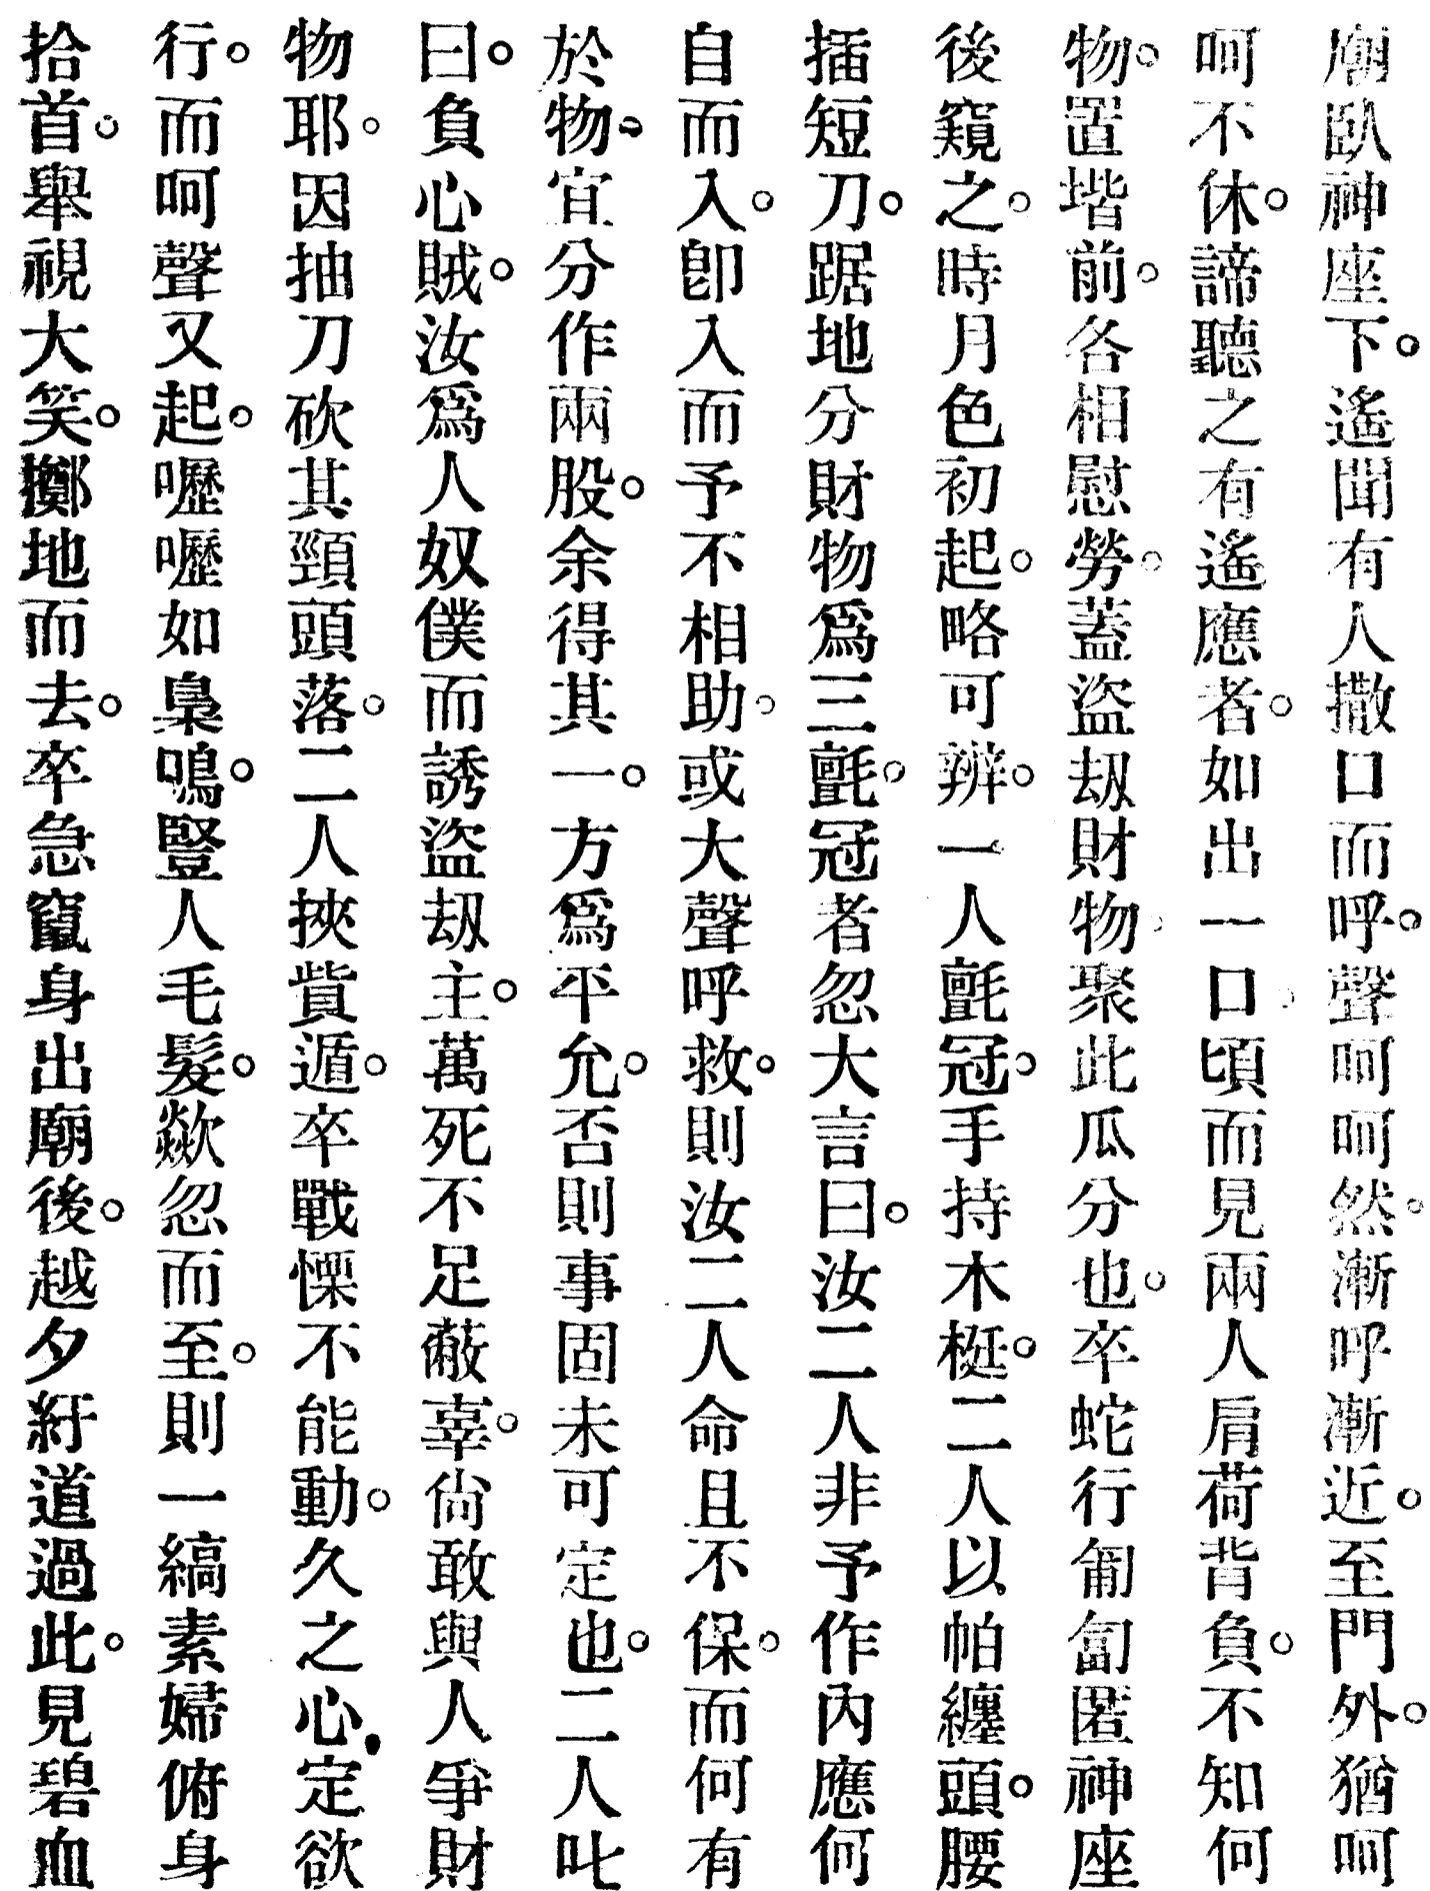 廟臥神座下。遙聞有人撒口而呼。聲呵呵然。漸呼漸近。至門外。猶呵
呵不休。諦聽之有遙應者。如出一口。頃而見兩人肩荷背負。不知何
物。置堦前。各相慰勞。蓋盜刼財物。聚此瓜分也。卒蛇行匍匐匿神座
後窺之。時月色初起。略可辨。一人氈冠。手持木梃。二人以帕纏頭。腰
插短刀。踞地分財物爲三。氈冠者忽大言曰。汝二人非予作內應何
自而入。卽入而予不相助。或大聲呼救。則汝二人命且不保。而何有
於物。宜分作兩股。余得其一。方爲平允。否則事固未可定也。二人叱
曰。負心賊。汝爲人奴僕而誘盜刼主。萬死不足蔽辜。尙敢與人爭財
物耶。因抽刀砍其頸頭落。二人挾貲遁。卒戰慄不能動。久之心定欲
行。而呵聲又起。嚦嚦如梟鳴。豎人毛髮。歘忽而至。則一縞素婦俯身
拾首。舉視大笑。擲地而去。卒急竄身出廟後。越夕紆道過此。見碧血